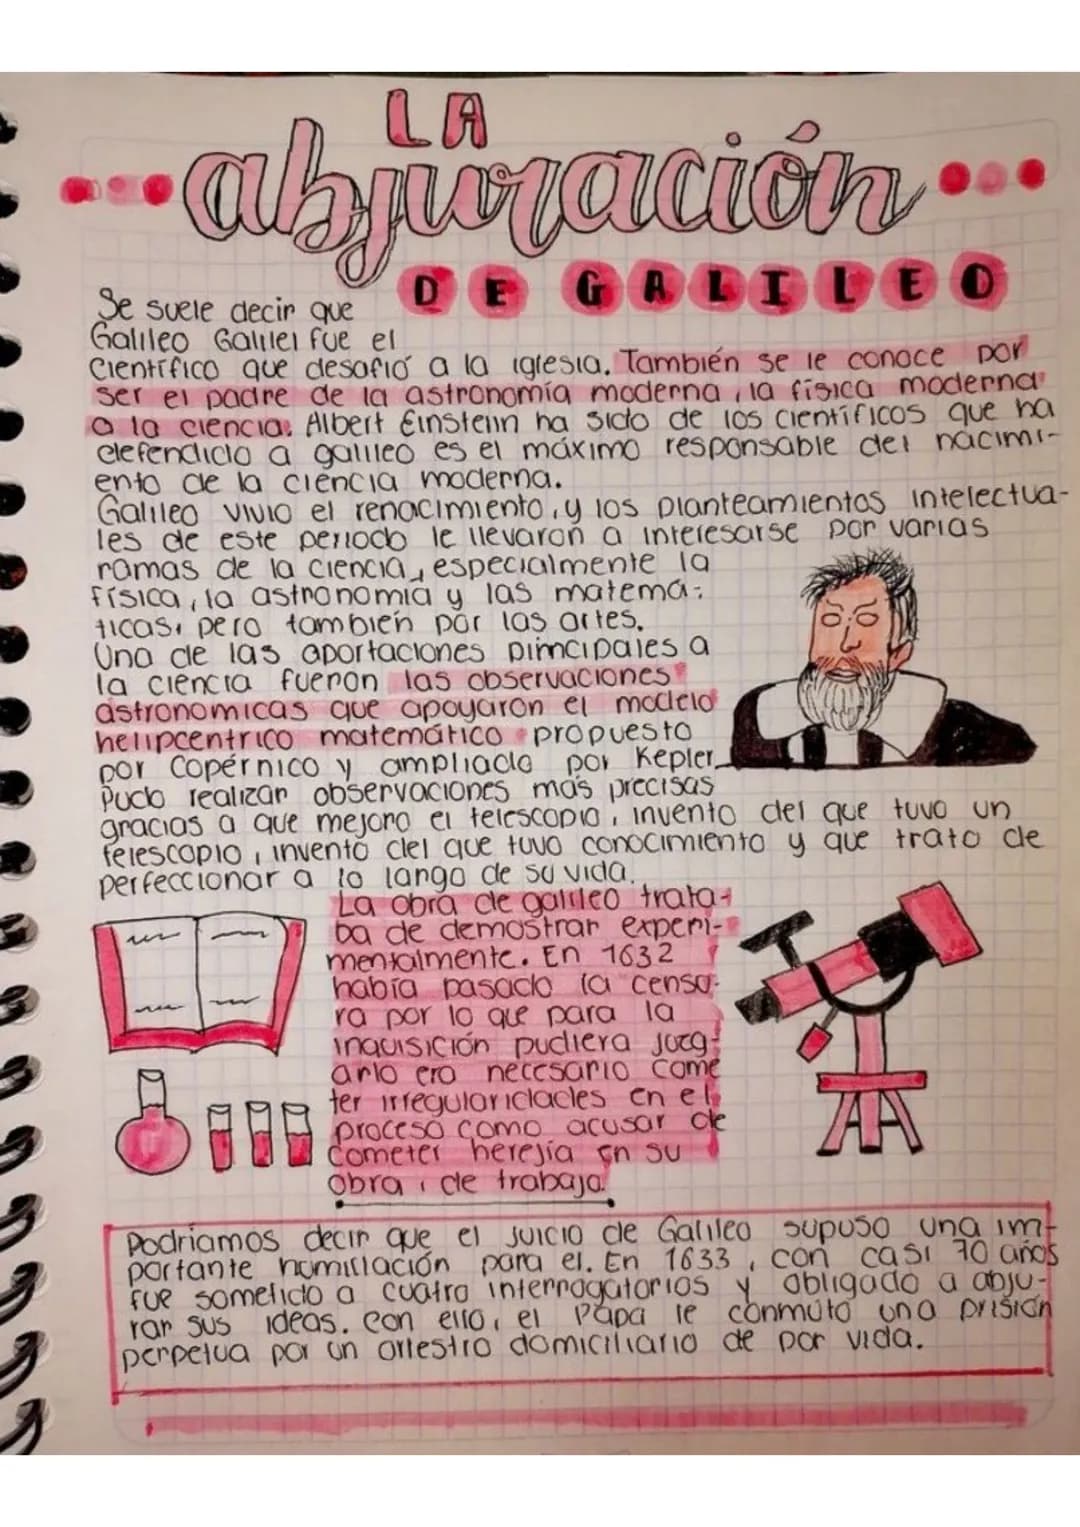 LA
abjuración
DE GALILEO
Se suele decir que
Galileo Galilei fue el
científico que desafió a la iglesia. También se le conoce por
ser el padre de la astronomía moderna, la física moderna
a la ciencia. Albert Einstein ha sido de los científicos que ha
defendido a galileo es el máximo responsable del nacimi-
ento de la ciencia moderna.
Galileo vivio el renacimiento, y los planteamientos intelectua-
les de este periodo le llevaron a interesarse por varias
ramas de la ciencia, especialmente la
física, la astronomia y las matemá-
ticas, pero también por las artes.
Una de las aportaciones principales a
la ciencia fueron las observaciones
astronomicas que apoyaron el modelo
heliocentrico matemático propuesto
por Copérnico y ampliado por Kepler.
Pudo realizar observaciones más precisas
gracias a que mejoro el telescopio, invento del que tuvo un
telescopio, invento del que tuvo conocimiento y que trato de
perfeccionar a lo largo de su vida.
La obra de galileo trata-
ba de demostrar experi-
mentalmente. En 1632
había pasado la censu-
ra por lo que para la
inquisición pudiera juzg-
arlo era necesario come
ter irregularidades en el
proceso como acusar de
cometer herejía en su
obra, de trabajo.
Podriamos decir que el juicio de Galileo supuso una im-
portante humillación para el. En 1633, con casi 70 años
fue sometido a cuatro interrogatorios y obligado a abju-
rar sus ideas. Con ello, el Papa le conmutó una prisión
perpetua por un arrestro domiciliario de por vida.